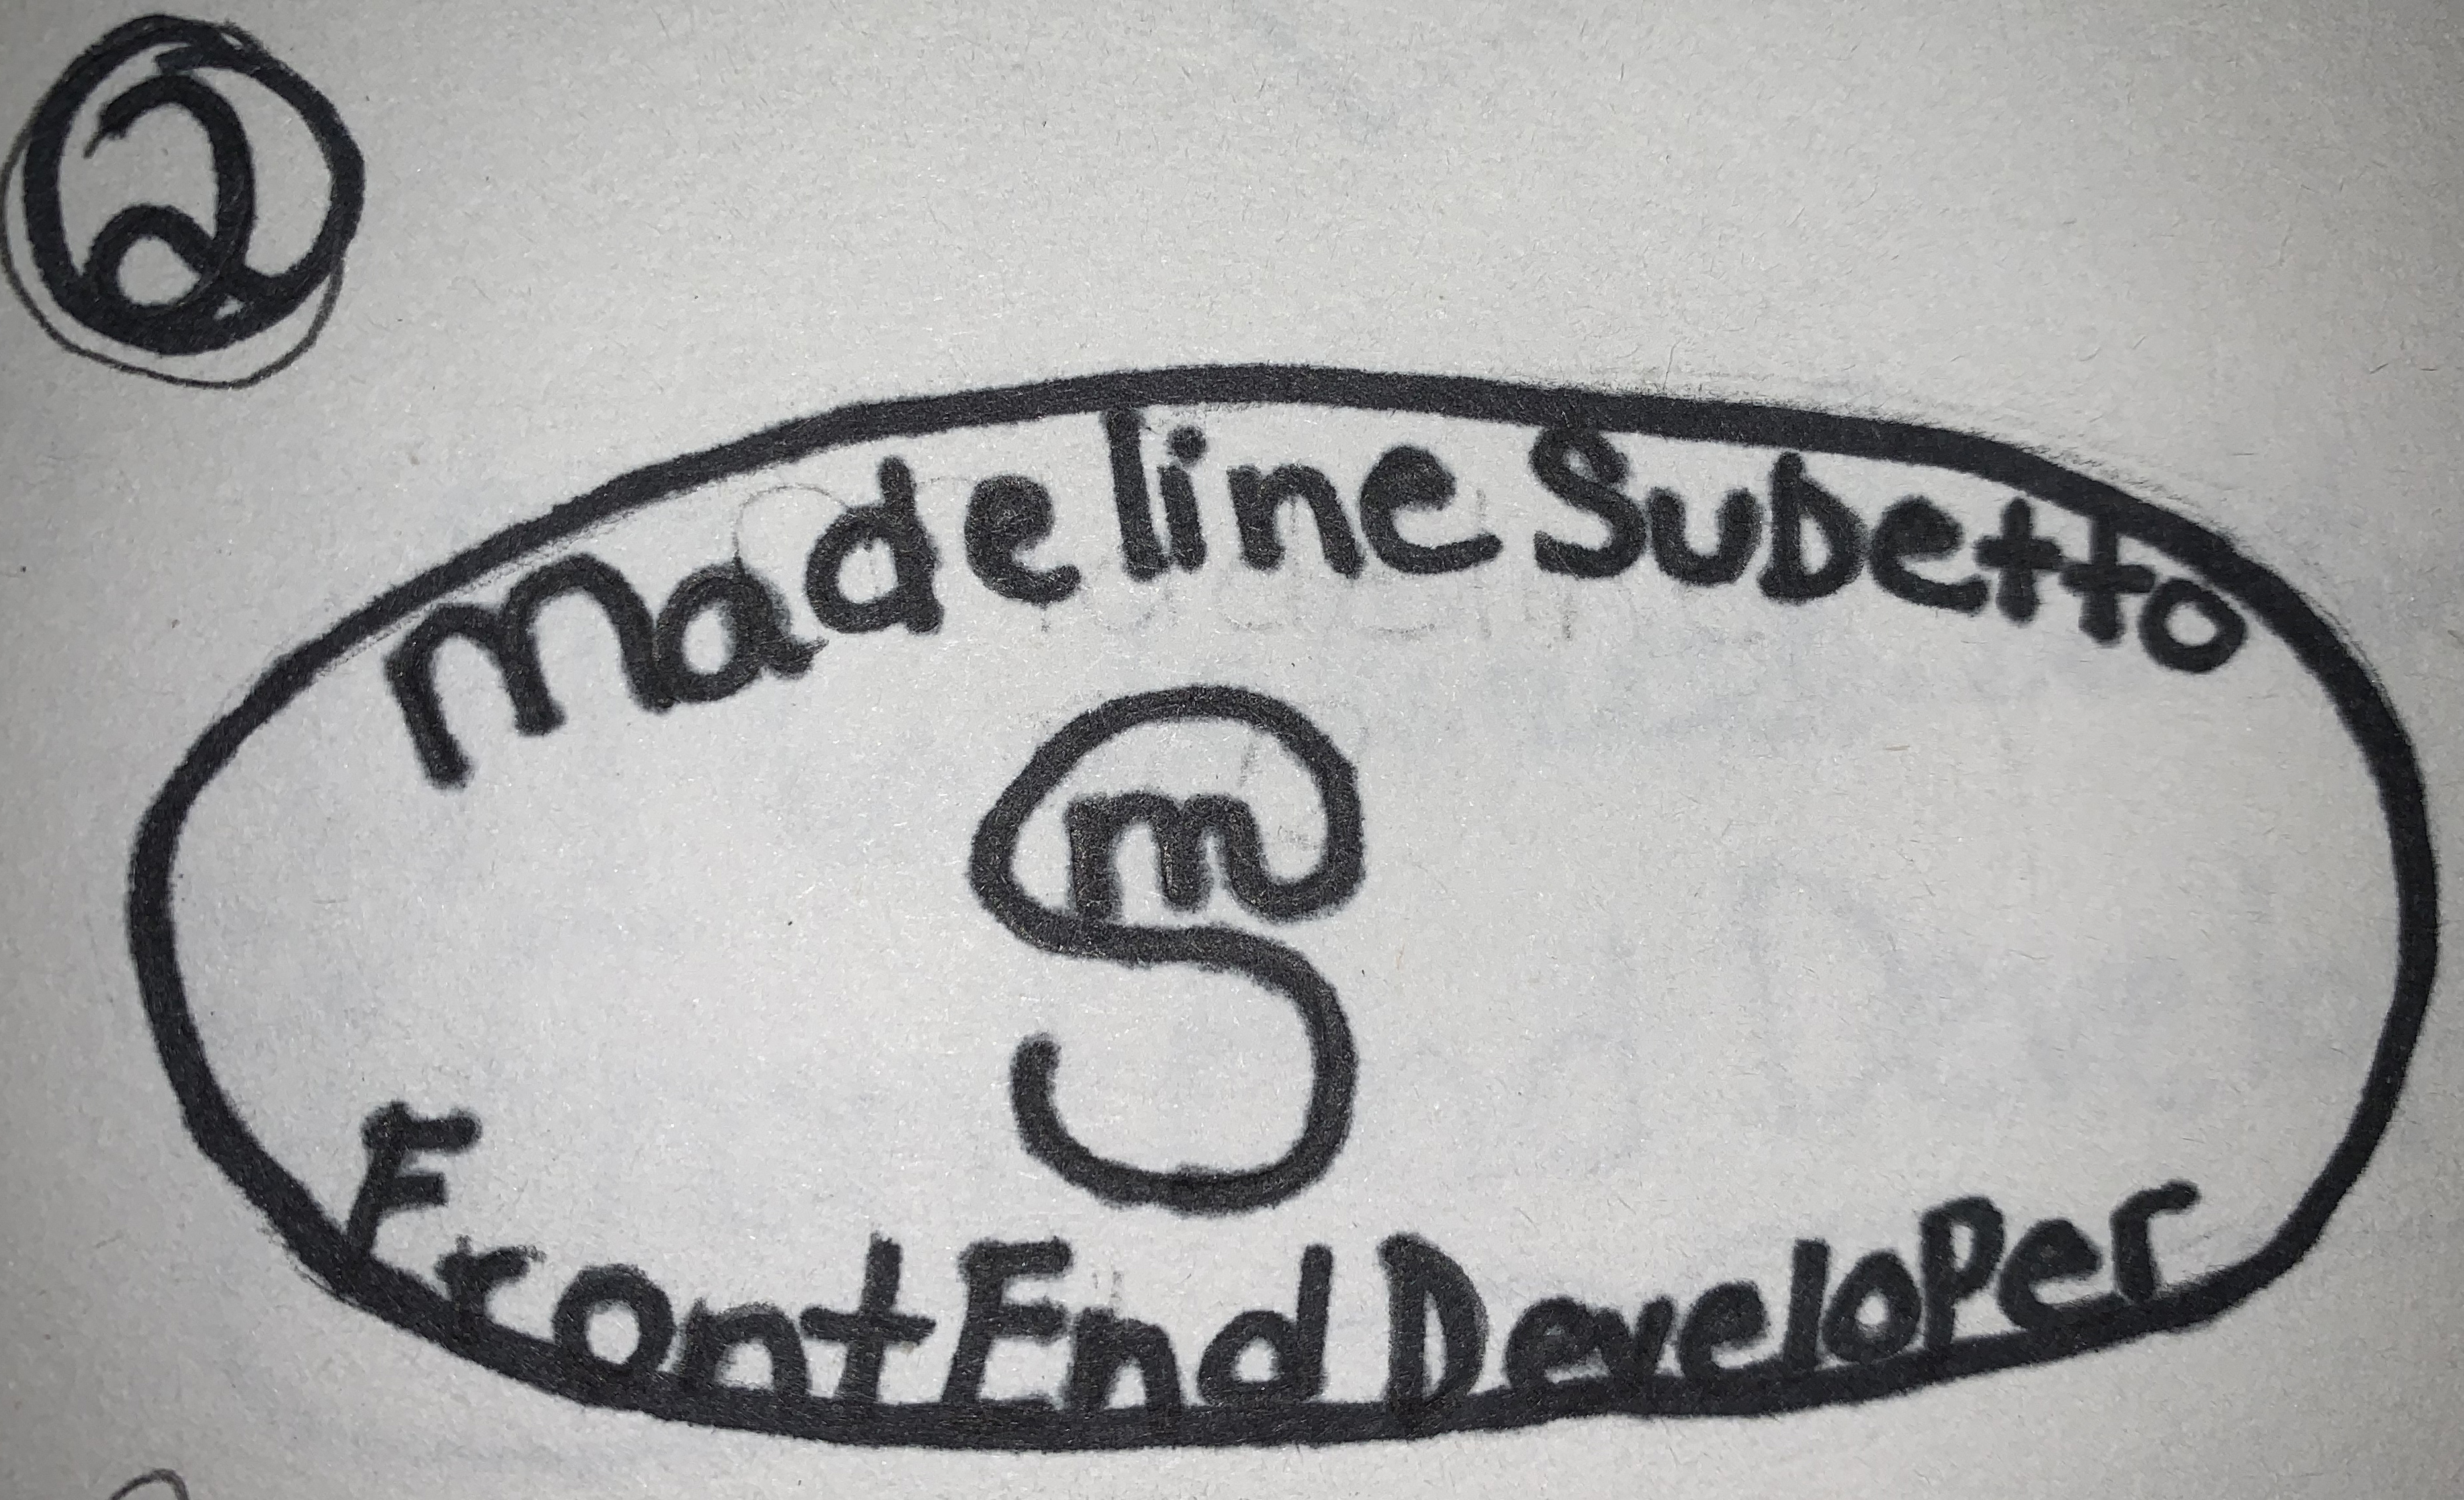 2
Madeline Subetto
m
S
Front End Developer